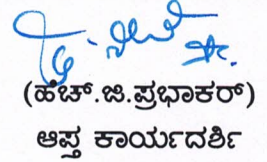 (ಹೆಚ್.ಜಿ.ಪ್ರಭಾಕರ್)
ಆಪ್ತ ಕಾರ್ಯದರ್ಶಿ